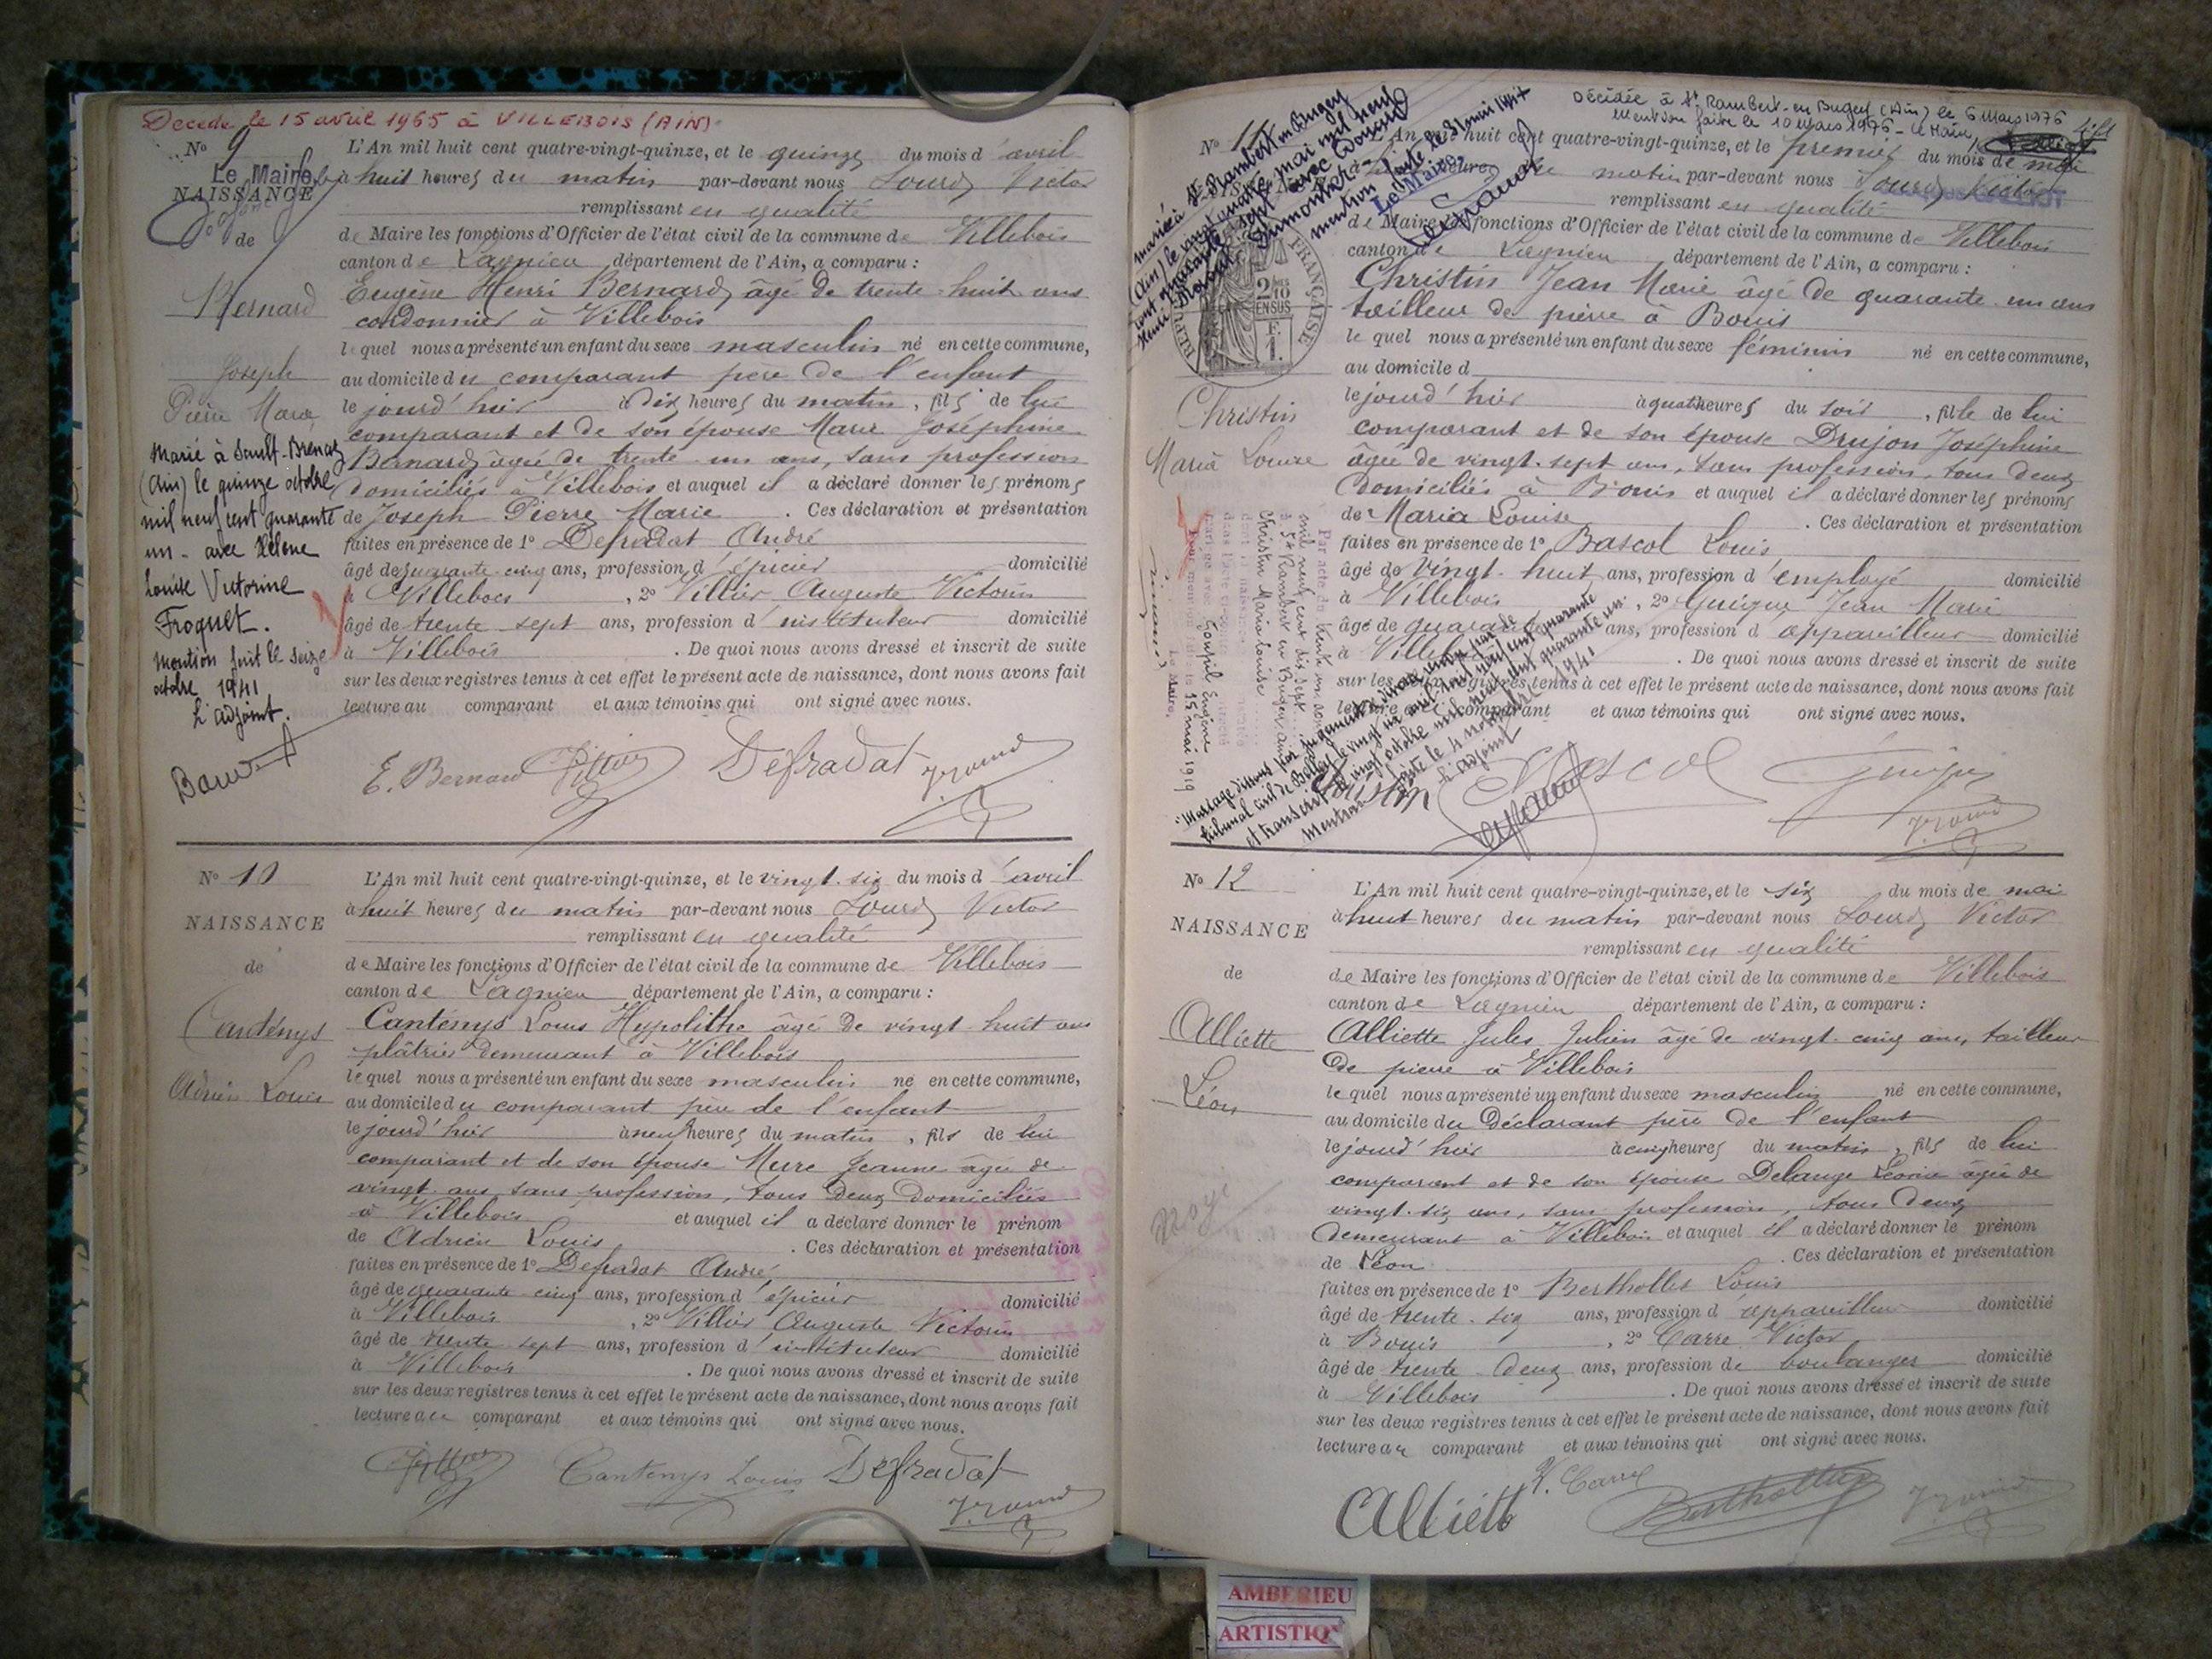 Decede le 15 avril 1965 à VILLEBOIS (AIN)
No 9
Le Maire,
NAISSANCE
de
Bernard
Joseph
Pierre Marie
Marié à Sault-Brenaz
(Ain) le quinze octobre
mil neuf cent quarante
un - avec Hélène
Louise Victorine
Froquet.
Mention fait le seize
octobre 1941
L'adjoint.
L'An mil huit cent quatre-vingt-quinze, et le quinze du mois d'avril
à huit heures du matin par-devant nous Lourdz Victor
remplissant en qualité
de Maire les fonctions d'Officier de l'état civil de la commune de Villebois
canton de Lagnieu département de l'Ain, a comparu :
Eugène Henri Bernard, âgé de trente-huit ans
cordonnier à Villebois
lequel nous a présenté un enfant du sexe masculin né en cette commune,
au domicile du comparant père de l'enfant
le jourd'hier à dix heures du matin, fils de lui
comparant et de son épouse Marie Joséphine
Bernard, âgée de trente un ans, sans profession
domiciliés à Villebois et auquel il a déclaré donner les prénoms
de Joseph Pierre Marie. Ces déclaration et présentation
faites en présence de 1o Defradat André
âgé de quarante cinq ans, profession d'épicier domicilié
à Villebois, 2o Villier Auguste Victorin
âgé de trente sept ans, profession d'instituteur domicilié
à Villebois. De quoi nous avons dressé et inscrit de suite
sur les deux registres tenus à cet effet le présent acte de naissance, dont nous avons fait
lecture au comparant et aux témoins qui ont signé avec nous.
E. Bernard Defradat
No 10
NAISSANCE
de
Cantenys
Adrien Louis
L'An mil huit cent quatre-vingt-quinze, et le vingt-six du mois d'avril
à huit heures du matin par-devant nous Lourdz Victor
remplissant en qualité
de Maire les fonctions d'Officier de l'état civil de la commune de Villebois
canton de Lagnieu département de l'Ain, a comparu :
Cantenys Louis Hypolithe âgé de vingt-huit ans
plâtrier demeurant à Villebois
lequel nous a présenté un enfant du sexe masculin né en cette commune,
au domicile du comparant père de l'enfant
le jourd'hier à neuf heures du matin, fils de lui
comparant et de son épouse Mure Jeanne âgée de
vingt ans, sans profession, tous deux domiciliés
à Villebois et auquel il a déclaré donner le prénom
de Adrien Louis. Ces déclaration et présentation
faites en présence de 1o Defradat André
âgé de quarante-cinq ans, profession d'épicier domicilié
à Villebois, 2o Villier Auguste Victorin
âgé de trente sept ans, profession d'instituteur domicilié
à Villebois. De quoi nous avons dressé et inscrit de suite
sur les deux registres tenus à cet effet le présent acte de naissance, dont nous avons fait
lecture au comparant et aux témoins qui ont signé avec nous.
Cantenys Louis Defradat
Décédée à St Rambert-en-Bugey (Ain) le 6 Mars 1976
Mention faite le 10 Mars 1976 - Le Maire,
No 11
mariée à St Rambert en Bugey
(Ain) le vingt quatre mai mil neuf
cent quarante sept avec
mention faite le 31 mai 1947
Le Maire,
Christin
Maria Louise
L'An mil huit cent quatre-vingt-quinze, et le premier du mois de mai
heures du matin par-devant nous Lourdz Victor
remplissant en qualité
de Maire les fonctions d'Officier de l'état civil de la commune de Villebois
canton de Lagnieu département de l'Ain, a comparu :
Christin Jean Marie âgé de quarante un ans
tailleur de pierre à Bouis
lequel nous a présenté un enfant du sexe féminin né en cette commune,
au domicile d
le jourd'hier à quatre heures du soir, fille de lui
comparant et de son épouse Drujon Joséphine
âgée de vingt-sept ans, sans profession, tous deux
domiciliés à Bouis et auquel il a déclaré donner les prénoms
de Maria Louise. Ces déclaration et présentation
faites en présence de 1o Bascol Louis
âgé de vingt-huit ans, profession d'employé domicilié
à Villebois, 2o Guigue Jean Marie
âgé de quarante ans, profession d'appareilleur domicilié
à Villebois. De quoi nous avons dressé et inscrit de suite
sur les deux registres tenus à cet effet le présent acte de naissance, dont nous avons fait
lecture au comparant et aux témoins qui ont signé avec nous.
Par acte du trente un
mil neuf cent dix sept
à St Rambert en Bugey, Ain
Christin Maria Louise
Goupil Eugène
15 mai 1919
Le Maire,
Mariage dissous par jugement de divorce rendu par le
tribunal civil de Belley le vingt un mai mil neuf cent quarante
et transcrit le vingt octobre mil neuf cent quarante un.
Mention faite le 4 novembre 1941
L'adjoint
Christin Bascol Guigue
No 12
NAISSANCE
de
Alliette
Léon
L'An mil huit cent quatre-vingt-quinze, et le six du mois de mai
à huit heures du matin par-devant nous Lourdz Victor
remplissant en qualité
de Maire les fonctions d'Officier de l'état civil de la commune de Villebois
canton de Lagnieu département de l'Ain, a comparu :
Alliette Jules Julien âgé de vingt-cinq ans, tailleur
de pierre à Villebois
lequel nous a présenté un enfant du sexe masculin né en cette commune,
au domicile du déclarant père de l'enfant
le jourd'hier à cinq heures du matin, fils de lui
comparant et de son épouse Delange Léonie âgée de
vingt-six ans, sans profession, tous deux
demeurant à Villebois et auquel il a déclaré donner le prénom
de Léon. Ces déclaration et présentation
faites en présence de 1o Berthollet Louis
âgé de trente-six ans, profession d'appareilleur domicilié
à Bouis, 2o Carre Victor
âgé de trente-deux ans, profession de boulanger domicilié
à Villebois. De quoi nous avons dressé et inscrit de suite
sur les deux registres tenus à cet effet le présent acte de naissance, dont nous avons fait
lecture au comparant et aux témoins qui ont signé avec nous.
Alliette V. Carre Berthollet
AMBERIEU
ARTISTIQ